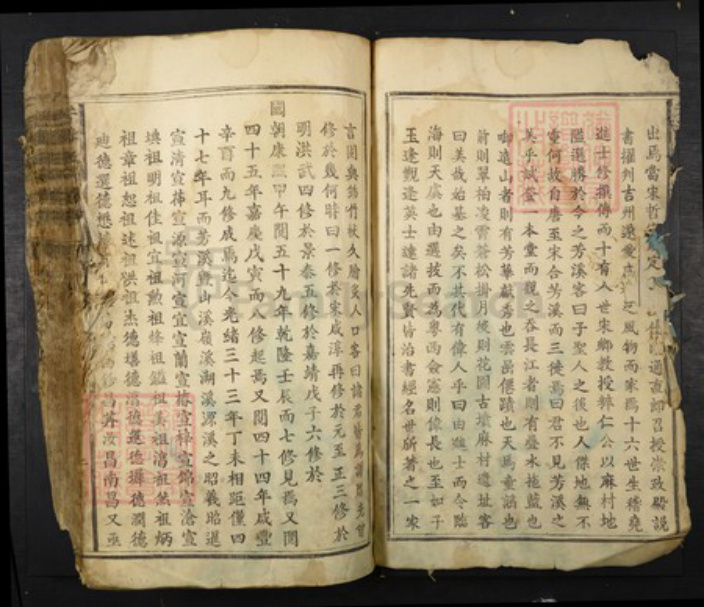 出焉當宋哲定通直郎召授崇政殿說
書擢判吉州遺愛風物而家焉十六世生稽堯
進士修撰傳而十有八世宋鄉教授粹仁公以麻村地
隘選勝於今之芳溪客曰子聖人之後也人傑地無不
靈何故自唐至宋合芳溪而三徙焉曰君不見芳溪之
美乎試登一本堂而觀之吞長江者則有疊水拖藍也
啣遠山者則有芳華獻秀也雲嵒僊蹟也天馬童謠也
前則翠柏凌雲蒼松掛月後則花園古墳麻村遺址客
曰美哉始基之矣不其代有偉人乎曰由進士而令臨
海則天虞也由選拔而為粵西僉憲則像長也至如子
玉達觀逢英士達諸先賢皆治書經名世所著之一家
言固與筠竹杖久膾炙人口客曰諸君皆為譜昌先曾
修於幾何時曰一修於宋咸淳再修於元至正三修於
明洪武四修於景泰五修於嘉靖戊子六修於
國朝康熙甲午閱五十九年乾隆壬辰而七修見焉又閱
四十五年嘉慶戊寅而八修起焉又閱四十四年咸豐
辛酉而九修成焉迄今光緒三十三年丁未相距僅四
十七年耳而芳溪豐山溪嶺溪湖溪源溪之昭義昭選
宣清宣揮宣源宣河宣宜宣蘭宣椿宣梓宣錦宣滄宣
煥祖明祖佳祖宜祖勲祖絳祖鎰祖美祖濤祖然祖炳
祖章祖恕祖述祖洪祖杰德墡德滔德德德潤德
迪德選德懋昌南昌又巫